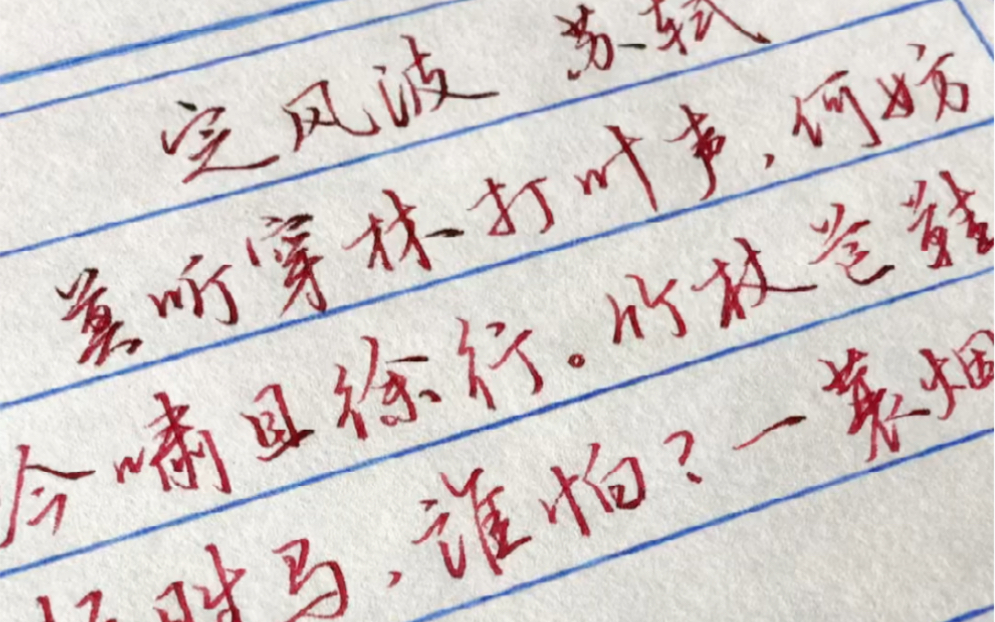 定风波 苏轼
莫听穿林打叶声,何妨
今啸且徐行。竹杖芒鞋
轻胜马,谁怕?一蓑烟